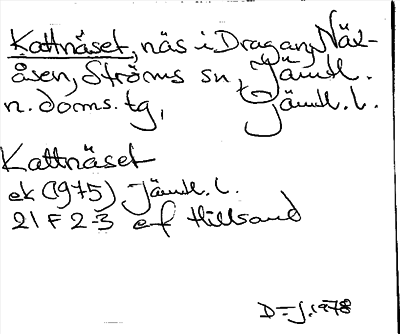 Kattnäset, näs i Dragan, Näx-
åsen, Ströms sn, Jämtl.
n. doms. tg, Jämtl. l.
Kattnäset
ek (1975) Jämtl. l.
21 F 2-3 e-f Hillsand
1978